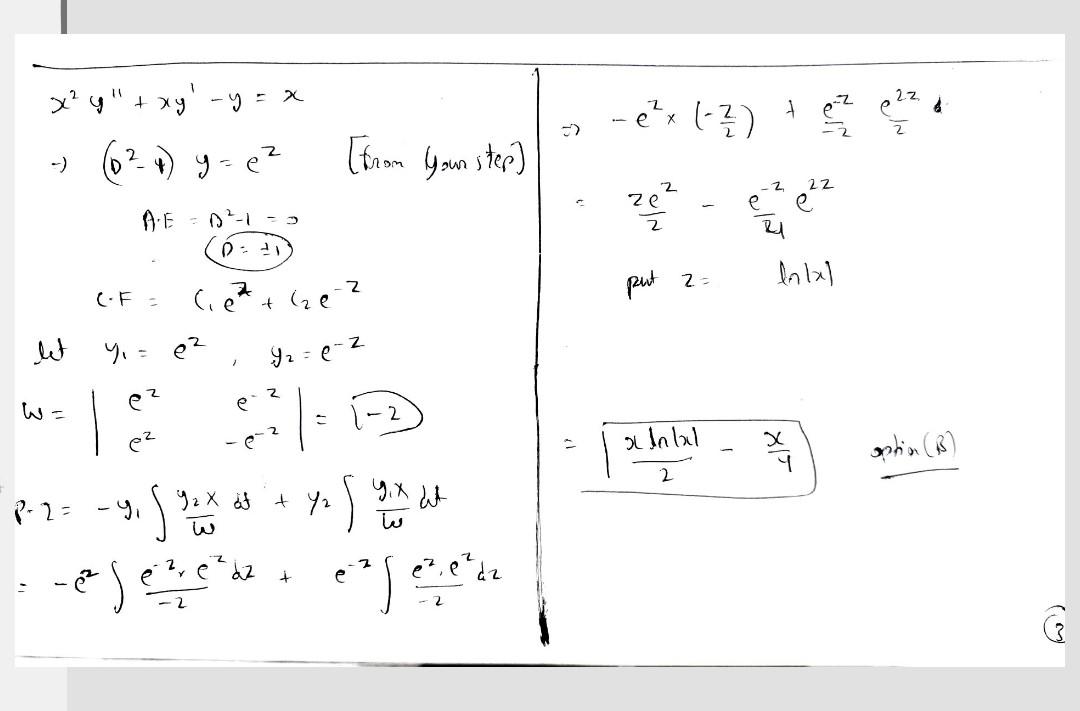 x² y'' + xy' - y = x
→) (D² - 1) y = e^z [from your step]
A.E = D² - 1 = 0
D = ±1
C.F = C₁e^z + C₂e^-z
let y₁ = e^z , y₂ = e^-z
W = | e^z e^-z | = -2
| e^z -e^-z |
P.I = -y₁ ∫ y₂X/W dt + y₂ ∫ y₁X/W dt
= -e^z ∫ e^-z, e^z/-2 dz + e^-z ∫ e^z.e^z/-2 dz
=> -e^z × (-z/2) + e^-z/-2 e^2z/2
= ze^z/2 - e^-z e^2z/4
put z = ln|x|
= x ln|x|/2 - x/4 option (B)
3